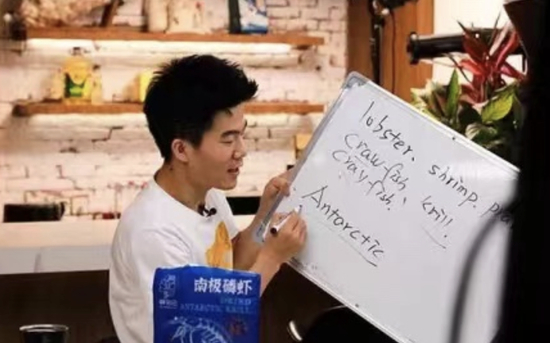 lobster. shrimp.
crawfish, krill
crayfish.
Antarctic
南极磷虾
ANTARCTIC KRILL